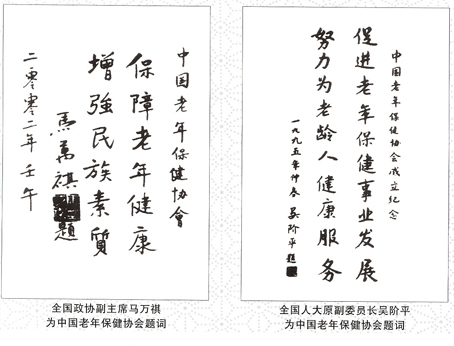 中国老年保健协會
保障老年健康
增強民族素質
馬萬祺題
二零零二年壬午
全国政协副主席马万祺
为中国老年保健协会题词
中国老年保健协会成立纪念
促进老年保健事业发展
努力为老龄人健康服务
一九九五年仲春 吴阶平题
全国人大原副委员长吴阶平
为中国老年保健协会题词